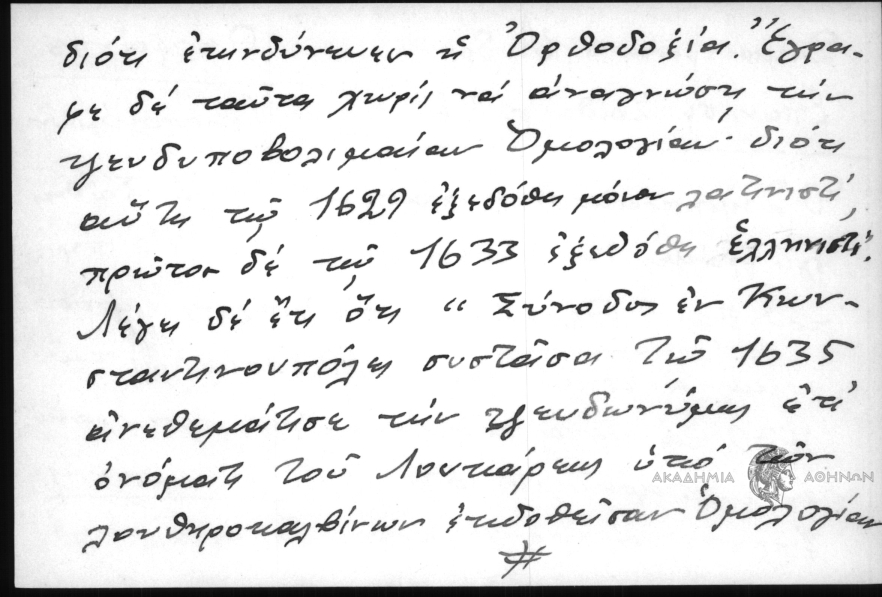 διότι ἐκινδύνευεν ἡ Ὀρθοδοξία. Ἔγρα-
ψε δέ ταῦτα χωρίς νά ἀναγνώσῃ τήν
ψευδυποβολιμαίαν Ὁμολογίαν· διότι
αὕτη τῷ 1629 ἐξεδόθη μόνον λατινιστί,
πρῶτον δέ τῷ 1633 ἐξεδόθη ἑλληνιστί.
Λέγει δέ ἔτι ὅτι “ Σύνοδος ἐν Κων-
σταντινουπόλει συστᾶσα τῷ 1635
ἀνεθεμάτισε τήν ψευδωνύμως ἐπ'
ὀνόματι τοῦ Λουκάρεως ὑπό τῶν
λουθηροκαλβίνων ἐκδοθεῖσαν Ὁμολογίαν
ΑΚΑΔΗΜΙΑ ΑΘΗΝΩΝ